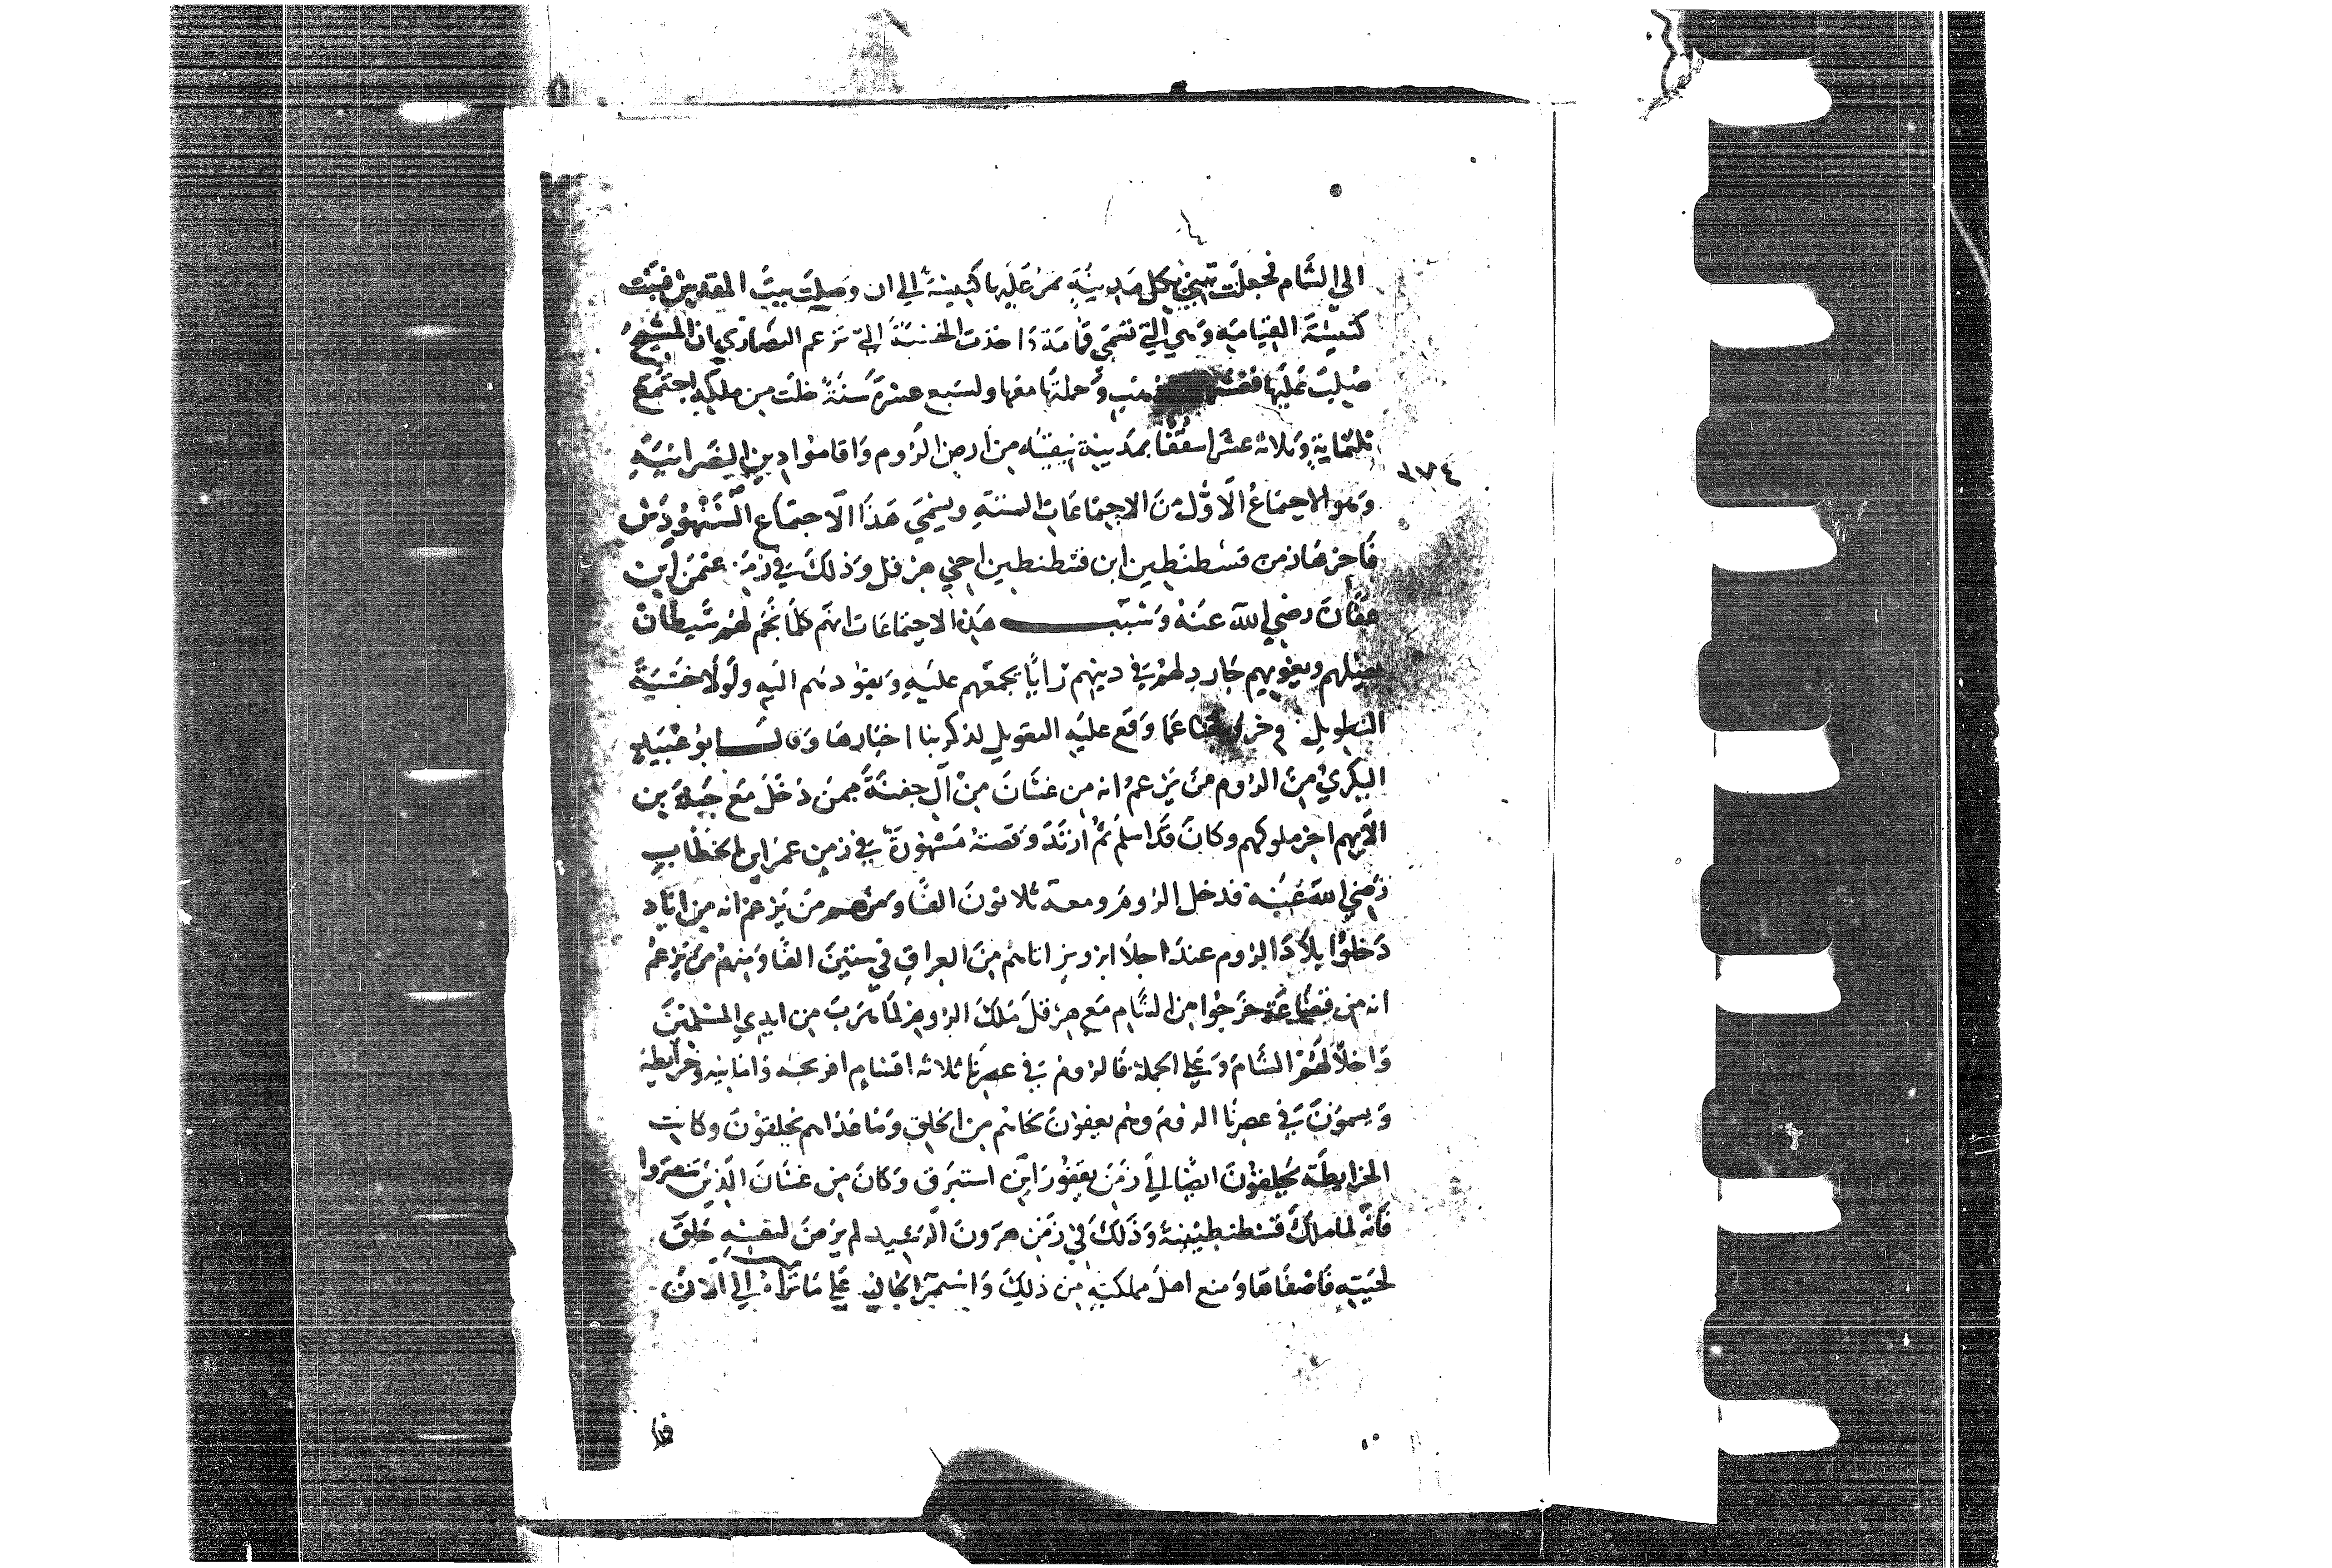 الي الشام فجعلت تبني بكل مدينة تمر عليها كنيسة الي ان وصلت بيت المقدس فبنت
كنيسة القيامه وهي التي تسمي قمامة واخذت الخشبة التي تزعم النصاري ان المسيح
صلب عليها وحملتها معها ولسبع عشرة سنة خلت من ملكه اجتمع
ثلثماية وثلاثة عشر اسقفا بمدينة نيقيه من ارض الروم واقاموا دين النصرانيه
٣٧٤
وهو الاجتماع الاول من الاجتماعات الستة ويسمي هذا الاجتماع السنهودس
فاخرها زمن قسطنطين ابن قسطنطين اخي هرقل وذلك في زمن عثمن ابن
عفان رضي الله عنه وسبب هذه الاجتماعات انهم كلما نجم لهم شيطان
يضلهم ويغويهم جدد لهم في دينهم رايا يجمعهم عليه ويقودهم اليه ولولا خشية
التطويل وخروجنا عما وقع عليه التعويل لذكرنا اخبارها وقال ابو عبيد
البكري من الروم من يزعم انه من غسان من آل جفنة ممن دخل مع جبلة بن
الايهم اخر ملوكهم وكان قد اسلم ثم ارتد وقصته مشهورة في زمن عمر ابن الخطاب
رضي الله عنه فدخل الروم ومعه ثلاثون الفا ومنهم من يزعم انه من اياد
دخلوا بلاد الروم عند اجلا ابرويز اناهم من العراق في ستين الفا ومنهم من يزعم
انه من قضاعة خرجوا من الشام مع هرقل ملك الروم لما هرب من ايدي المسلمين
واخلا لهم الشام وعلي الجملة فالروم في عصرنا ثلاثه اقسام افرنجه واالمانيه وخرايطية
ويسمون في عصرنا الروم وهم يعفون لحاهم من الحلق وما عداهم يحلقون وكانت
الخرايطة يحلقون ايضا الي زمن يعفور ابن استبرق وكان من غسان الذين تنصروا
فانه لما ملك قسطنطينية وذلك في زمن هرون الرشيد لم يرض لنفسه حلق
لحيته فاعفاها ومنع اهل مملكته من ذلك واستمر الحال علي ما تراه الي الان